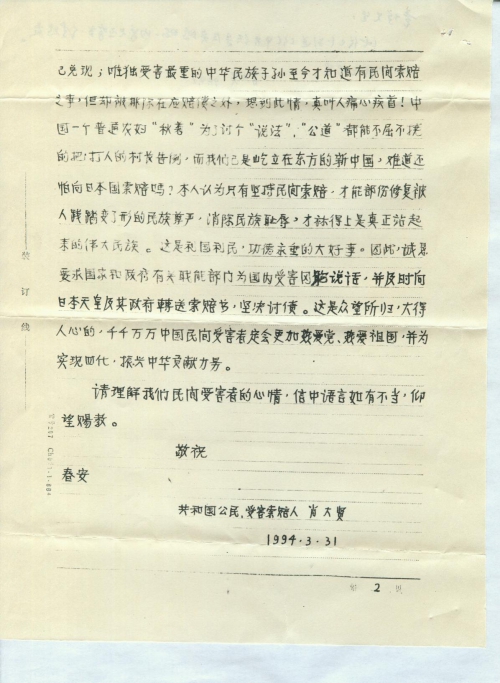 已兑现；唯独受害最重的中华民族子孙至今才知道有民间索赔
之事，但却被排除在应赔偿之外，想到此情，真叫人痛心疾首！中
国一个普通农妇“秋菊”为了讨个“说法”，“公道”都能不屈不挠
的把打人的村长告倒，而我们已是屹立在东方的新中国，难道还
怕向日本国索赔吗？本人认为只有坚持民间索赔，才能部份修复被
人践踏变了形的民族尊严，消除民族耻辱，才称得上是真正站起
来的伟大民族。这是利国利民，功德永垂的大好事。因此，诚恳
要求国家和政府有关职能部门为国内受害同胞说话，并及时向
日本天皇及其政府转送索赔书，坚决讨债。这是众望所归，大得
人心的，千千万万中国民间受害者定会更加热爱党、热爱祖国，并为
实现四化，振兴中华贡献力量。
请理解我们民间受害者的心情，信中语言如有不当，仰
望赐教。
敬祝
春安
共和国公民、受害索赔人 肖大贤
1994.3.31
第 2 页
装订线